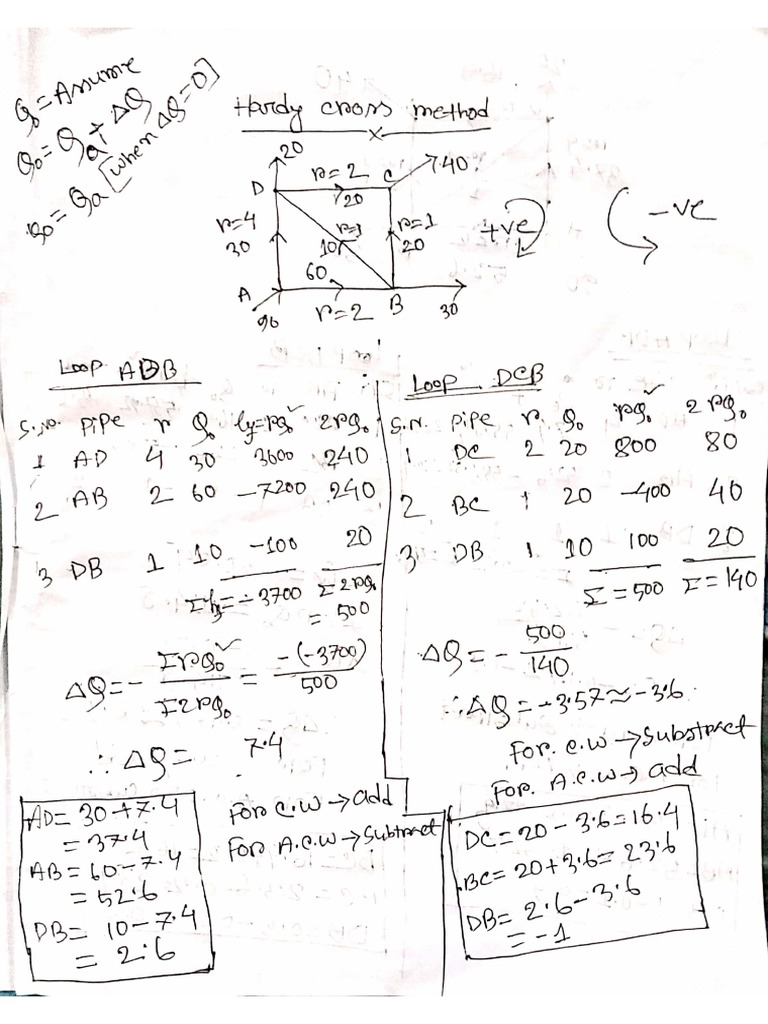 Q₀ = Assume
Q₀ = Qa + ΔQ
Q₀ = Qa [when ΔQ = 0]
Hardy cross method
20
D r=2 C 40
20
r=4 r=1 r=1
30 10 20
60
A B
90 r=2 30
+ve
-ve
Loop ADB
S.N. Pipe r Q₀ hf=rQ₀² 2rQ₀
1 AD 4 30 3600 240
2 AB 2 60 -7200 240
3 DB 1 10 -100 20
Σhf = -3700 Σ2rQ₀ = 500
ΔQ = - ΣrQ₀² / Σ2rQ₀ = -(-3700) / 500
∴ ΔQ = 7.4
For C.W → add
For A.C.W → Subtract
AD = 30 + 7.4
= 37.4
AB = 60 - 7.4
= 52.6
DB = 10 - 7.4
= 2.6
Loop DCB
S.N. Pipe r Q₀ rQ₀² 2rQ₀
1 DC 2 20 800 80
2 BC 1 20 -400 40
3 DB 1 10 100 20
Σ = 500 Σ = 140
ΔQ = - 500 / 140
∴ ΔQ = -3.57 ≈ -3.6
For C.W → Substract
For A.C.W → add
DC = 20 - 3.6 = 16.4
BC = 20 + 3.6 = 23.6
DB = 2.6 - 3.6
= -1